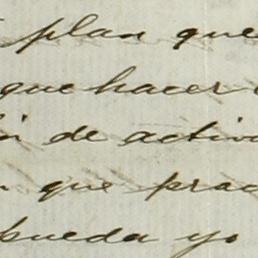 plan que
que hacer
de activ
que prac
pueda yo